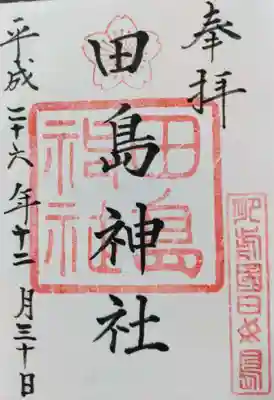 奉拝
田島神社
平成二十六年十二月三十日
田島神社